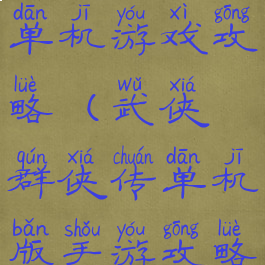 dān jī yóu xì gōng
单机游戏攻
lüè wǔ xiá
略（武侠
qún xiá chuán dān jī
群侠传单机
bǎn shǒu yóu gōng lüè
版手游攻略